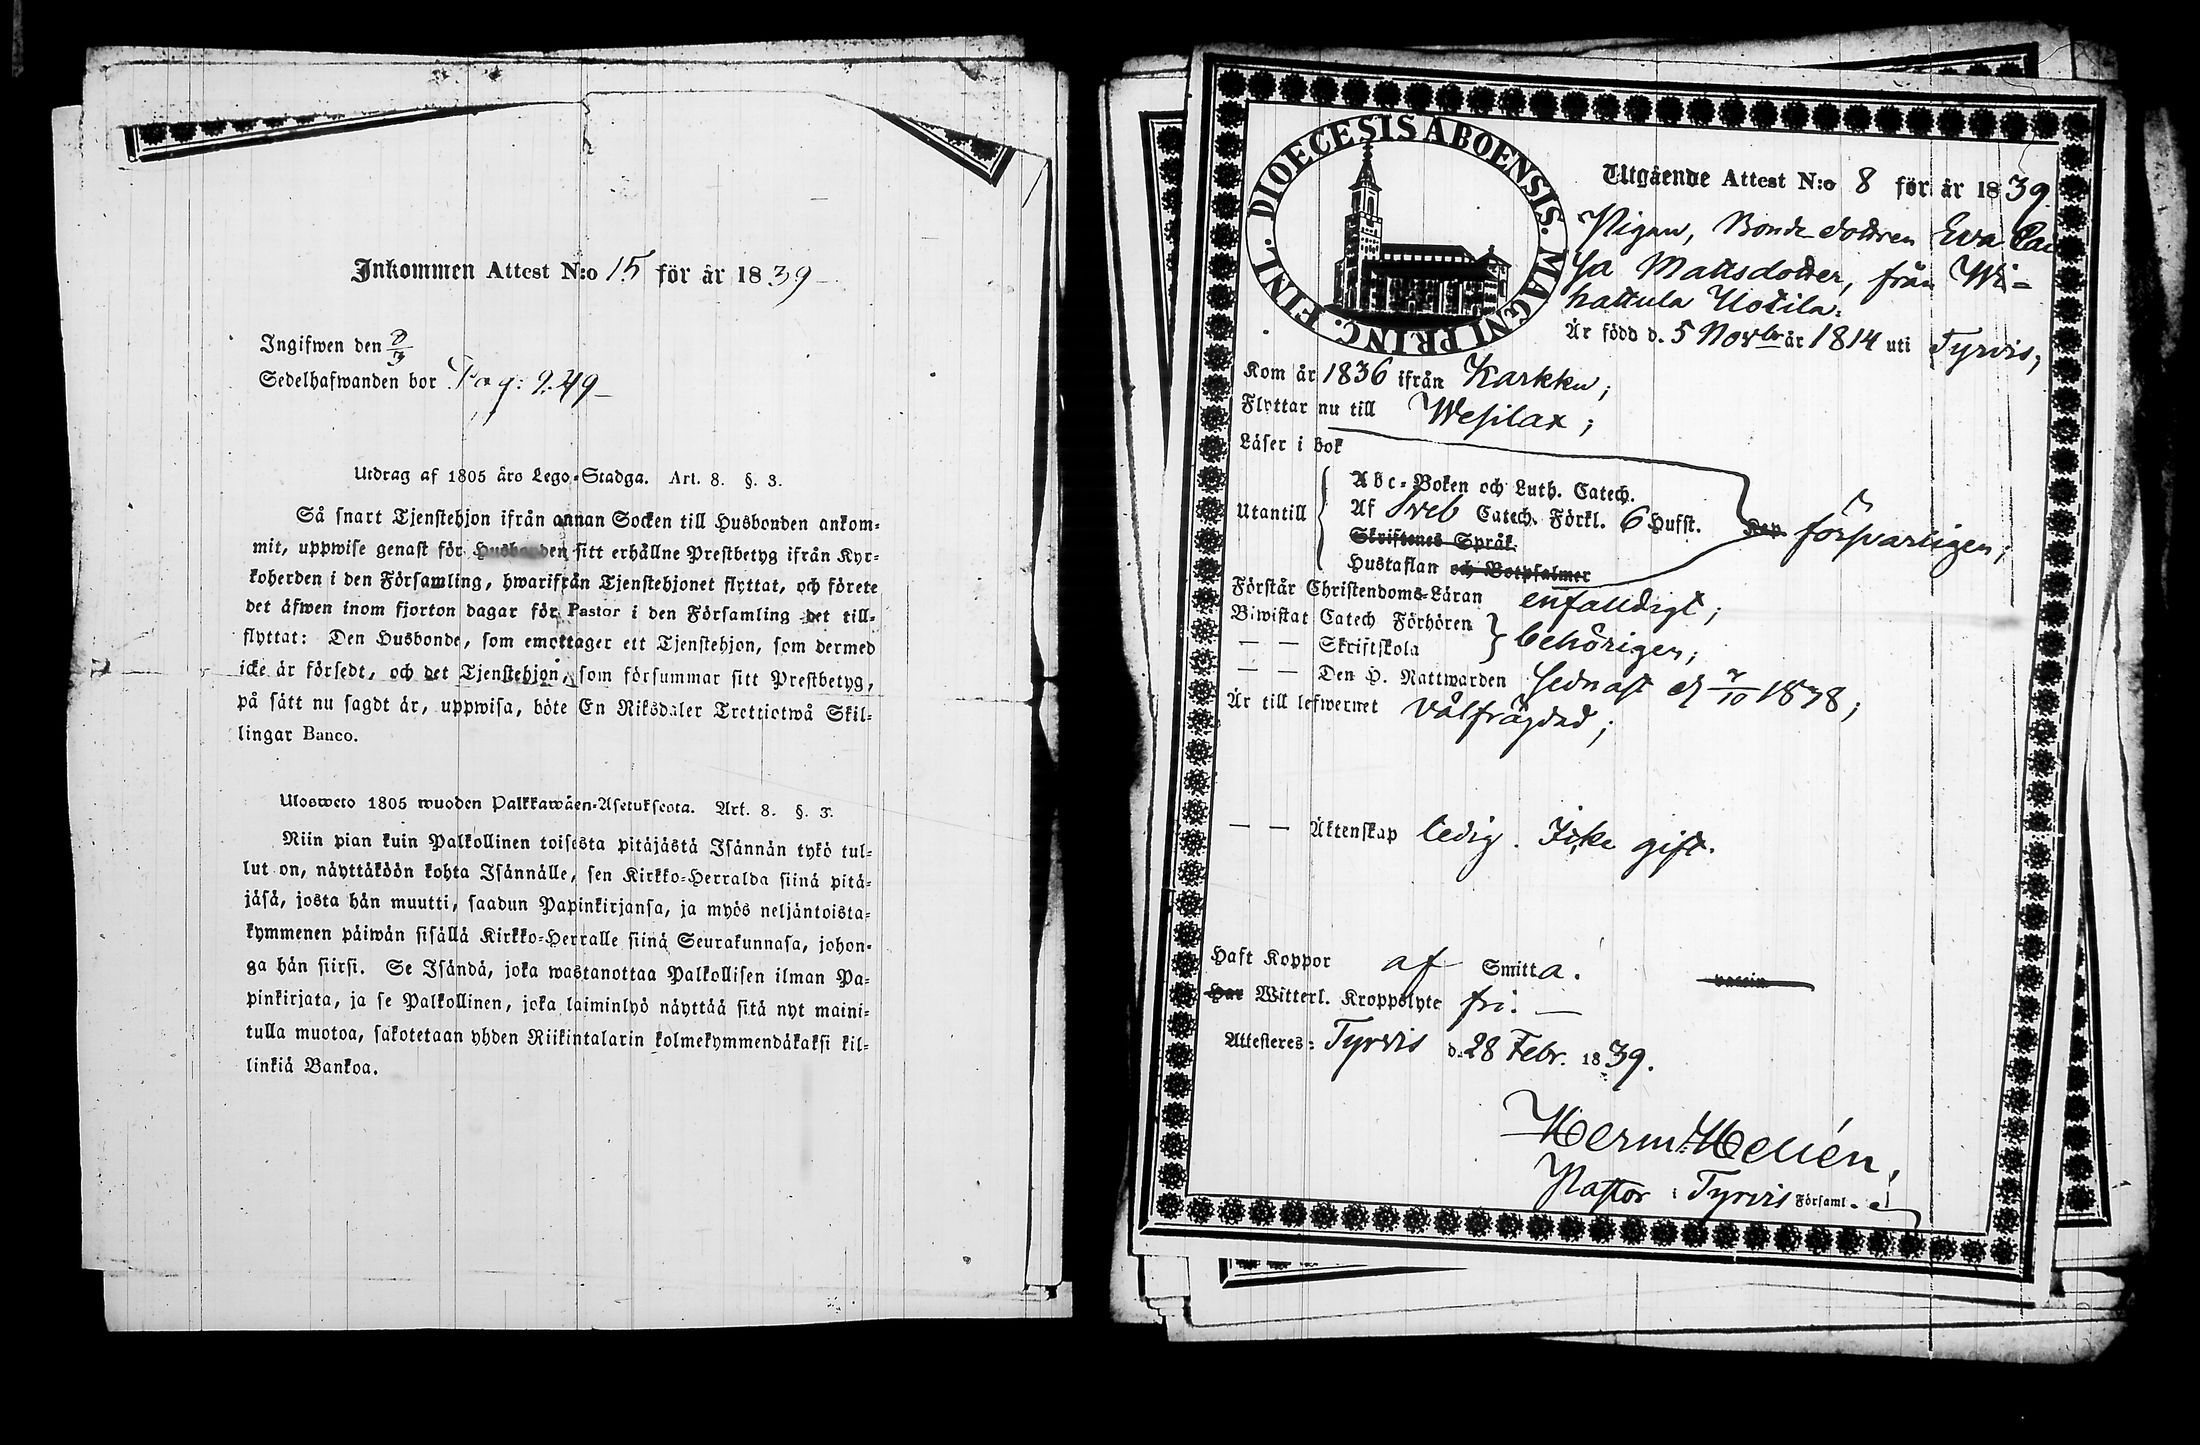 Inkommen Attest N:o 15 för år 1839
Ingifwen den
Sedelhafwanden bor Pag: 249
Utdrag af 1805 års Lego-Stadga. Art. 8. §. 3.
Så snart Tjenstehjon ifrån annan Socken till Husbonden ankom-
mit, uppwise genast för Husbonden sitt erhållne Prestbetyg ifrån Kyr-
koherden i den Församling, hwarifrån Tjenstehjonet flyttat, och förete
det äfwen inom fjorton dagar för Pastor i den Församling det till-
flyttat: Den Husbonde, som emottager ett Tjenstehjon, som dermed
icke är försedt, och det Tjenstehjon, som försummar sitt Prestbetyg,
på sätt nu sagdt är, uppwisa, böte En Riksdaler Trettiotwå Skil-
lingar Banco.
Ulosweto 1805 wuoden Palkkawäen-Asetuksesta. Art. 8. §. 3.
Niin pian kuin Palkollinen toisesta pitäjästä Isännän tykö tul-
lut on, näyttäköön kohta Isännälle, sen Kirkko-Herralda siinä pitä-
jäsä, josta hän muutti, saadun Papinkirjansa, ja myös neljäntoista-
kymmenen päiwän sisällä Kirkko-Herralle siinä Seurakunnasa, johon-
ga hän siirsi. Se Isändä, joka wastanottaa Palkollisen ilman Pa-
pinkirjata, ja se Palkollinen, joka laiminlyö näyttää sitä nyt maini-
tulla muotoa, sakotetaan yhden Riikintalarin kolmekymmendäkaksi kil-
linkiä Bankoa.
DIOECESIS ABOENSIS. MAGNI PRINC. FINL.
Utgående Attest N:o 8 för år 1839.
Pigan, Bonde dottren Eva Cai
sa Mattsdotter, från Wi-
hattula Uotila.
Är född d. 5 Novbr år 1814 uti Tyrvis,
Kom år 1836 ifrån Karkku;
Flyttar nu till Wesilax;
Läser i bok
Abc-Boken och Luth. Catech.
Utantill Af Sveb Catech. Förkl. 6 Hufst. försvarligen;
Skriftenes Språk
Hustaflan och Botpsalmer
Förstår Christendoms-Läran enfalldigt;
Biwistat Catech Förhören
— — Skriftskola behörigen;
— — Den H. Nattwarden sednast d. 7/10 1838;
Är till lefwernet välfrägdad;
— — Äktenskap ledig. Icke gift.
Haft Koppor af Smitta. vaccin
Har Witterl. Kroppslyte fri. —
Attesteres: Tyrvis d. 28 Febr. 1839.
Herm: Hellén,
Pastor i Tyrvis Församl.